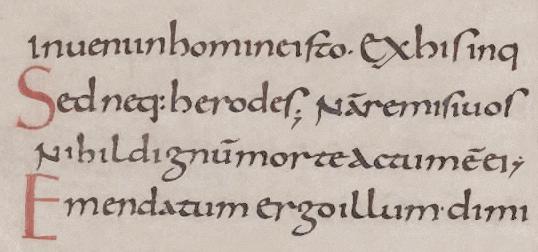 inueni in homine isto. Ex his in q
Sed neq: herodes; Nā remisi uos
Nihil dignū morte actum ē ei;
Emendatum ergo illum. dimi